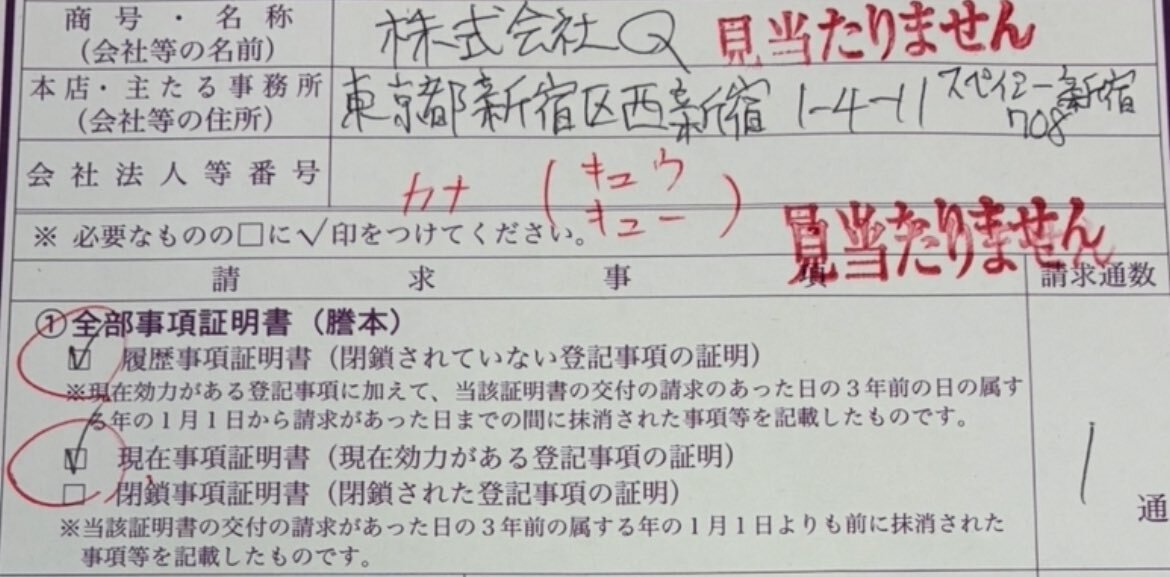 商号・名称
(会社等の名前)
株式会社Q
見当たりません
本店・主たる事務所
(会社等の住所)
東京都新宿区西新宿 1-4-11 スペイシー新宿
708
会社法人等番号
カナ(キュウ
キュー)
見当たりません
※ 必要なものの□に✓印をつけてください。
請求事項
請求通数
①全部事項証明書(謄本)
☑ 履歴事項証明書(閉鎖されていない登記事項の証明)
※現在効力がある登記事項に加えて、当該証明書の交付の請求のあった日の3年前の日の属す
る年の1月1日から請求があった日までの間に抹消された事項等を記載したものです。
☑ 現在事項証明書(現在効力がある登記事項の証明)
□ 閉鎖事項証明書(閉鎖された登記事項の証明)
※当該証明書の交付の請求があった日の3年前の属する年の1月1日よりも前に抹消された
事項等を記載したものです。
1 通